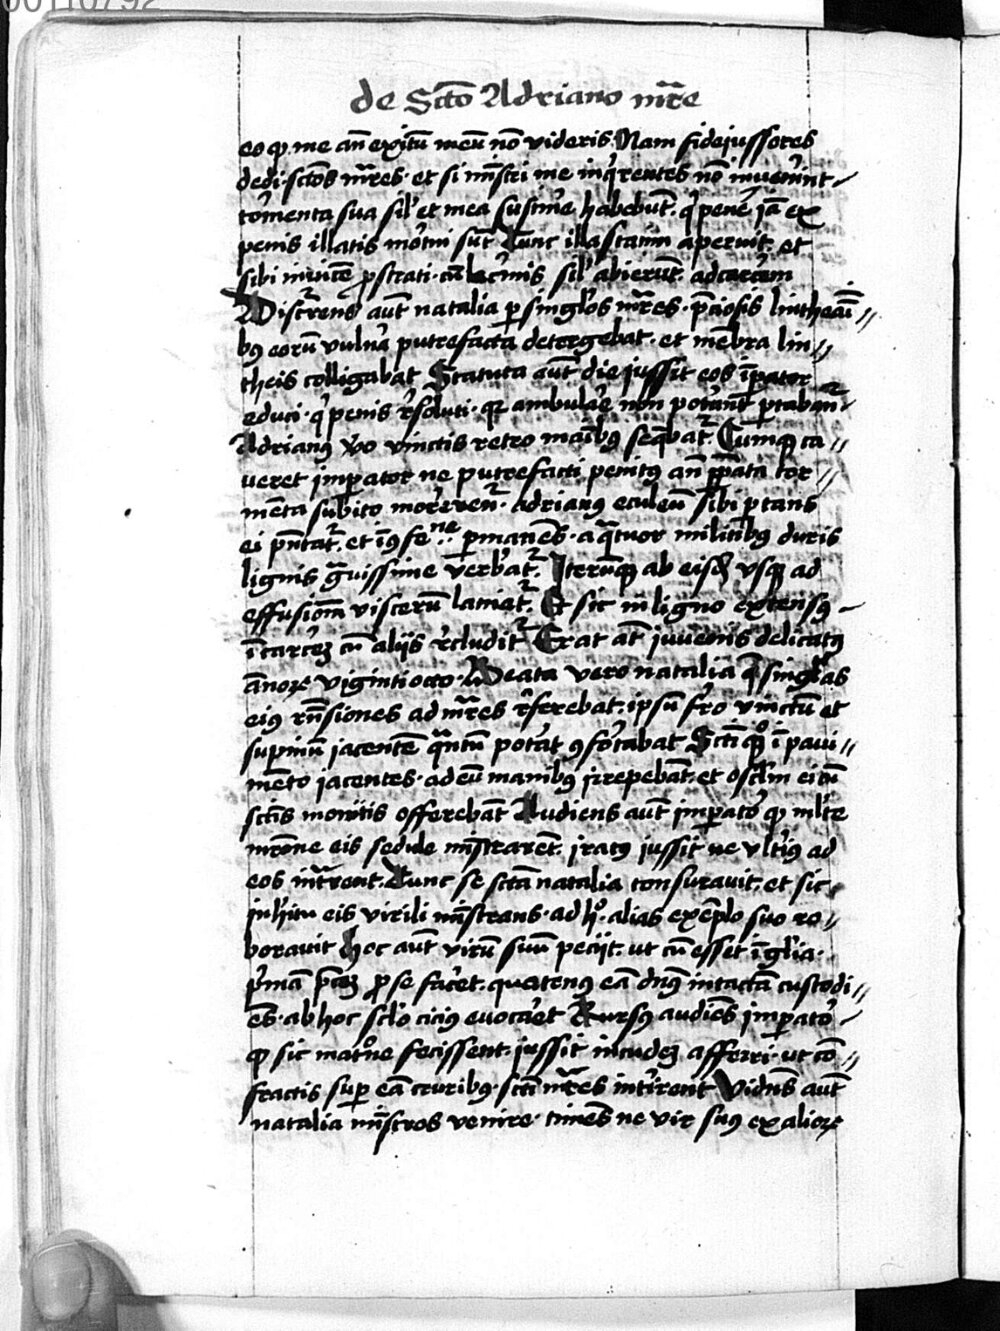 00110792
de Scto Adriano mr̄e
eo ꝙ me an̄ exitū meū nō videris Nam fidejussores
dedi sctōs mr̄es et si mīstri me inq̄rentes nō invenint
tormenta sua sil' et mea sustine habebūt q' pene jā ex
penis illatis mortui sūt Tunc illa statim aperuit et
sibi invicē prostrati cū lacrīis sil' abierūt ad carcerem
Discurrens aūt natalia p singulos mr̄es p̄ciosis lintheaī
bꝰ eorū vulnā putrefacta detergebat et mēbra lin
theis colligabat Statuta aūt die jussit eos īpator
educi q' penis rsoluti qꝛ ambulare non poterāt portabanr̄
Adrianꝰ vo vinctis retro maibꝰ seq̄bat̄ Cumqꝫ ca
veret imperator ne putrefacti penitꝰ an̄ ꝑpata tor
mēta subito morerenr̄ Adrianꝰ eculeū sibi portans
ei pn̄tatr̄ et īꝰ se ne pmanēs a q̄tuor militibꝰ duris
lignis gvissime verbatr̄ Iterūqꝫ ab eisd' vsqꝫ ad
effusionē viscerū laniatr̄ Et sic in ligno extensꝰ
ī carcerē cū aliis recluditr̄ Erat at̄ juvenis delicatꝰ
ānoꝝ vigintiocto Beata vero natalia q̄ singulas
eiꝰ rn̄siones ad mr̄es referebat ipsū fro vinctū et
supinū jacentē q̄ntū poterat ꝯfortabat Sctī qꝙ ī pavi
mēto jacentes ad eū manibꝰ irrepebāt et oscl'm ei cū
sctīs monitis offerebāt Audiens aūt imperator ꝙ mlt̄e
mrōne eis sedule mīstrarēt iratꝰ jussit ne vlteriꝰ ad
eos intrent Tunc se sctā natalia tonsuravit et sic
in hitu eis virili mīstrans ad h° alias exēplo suo ro
boravit Hoc aūt virū suū peciit ut cū esset ī gl'ia
p'mā p̄cē pro se facet quatenꝰ eā dn̄s intactā custodi
ēs ab hoc sclo ciciꝰ evocaret Rursꝰ audiēs imperator
ꝙ sic matrone fecissent jussit incudē afferri ut cō
fractis sup eā cruribꝰ sctī mr̄es intirent Vidēs aūt
natalia mīstros venire timēs ne vir suꝰ ex alioꝝ